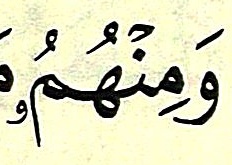 وَمِنۡهُمُۥ